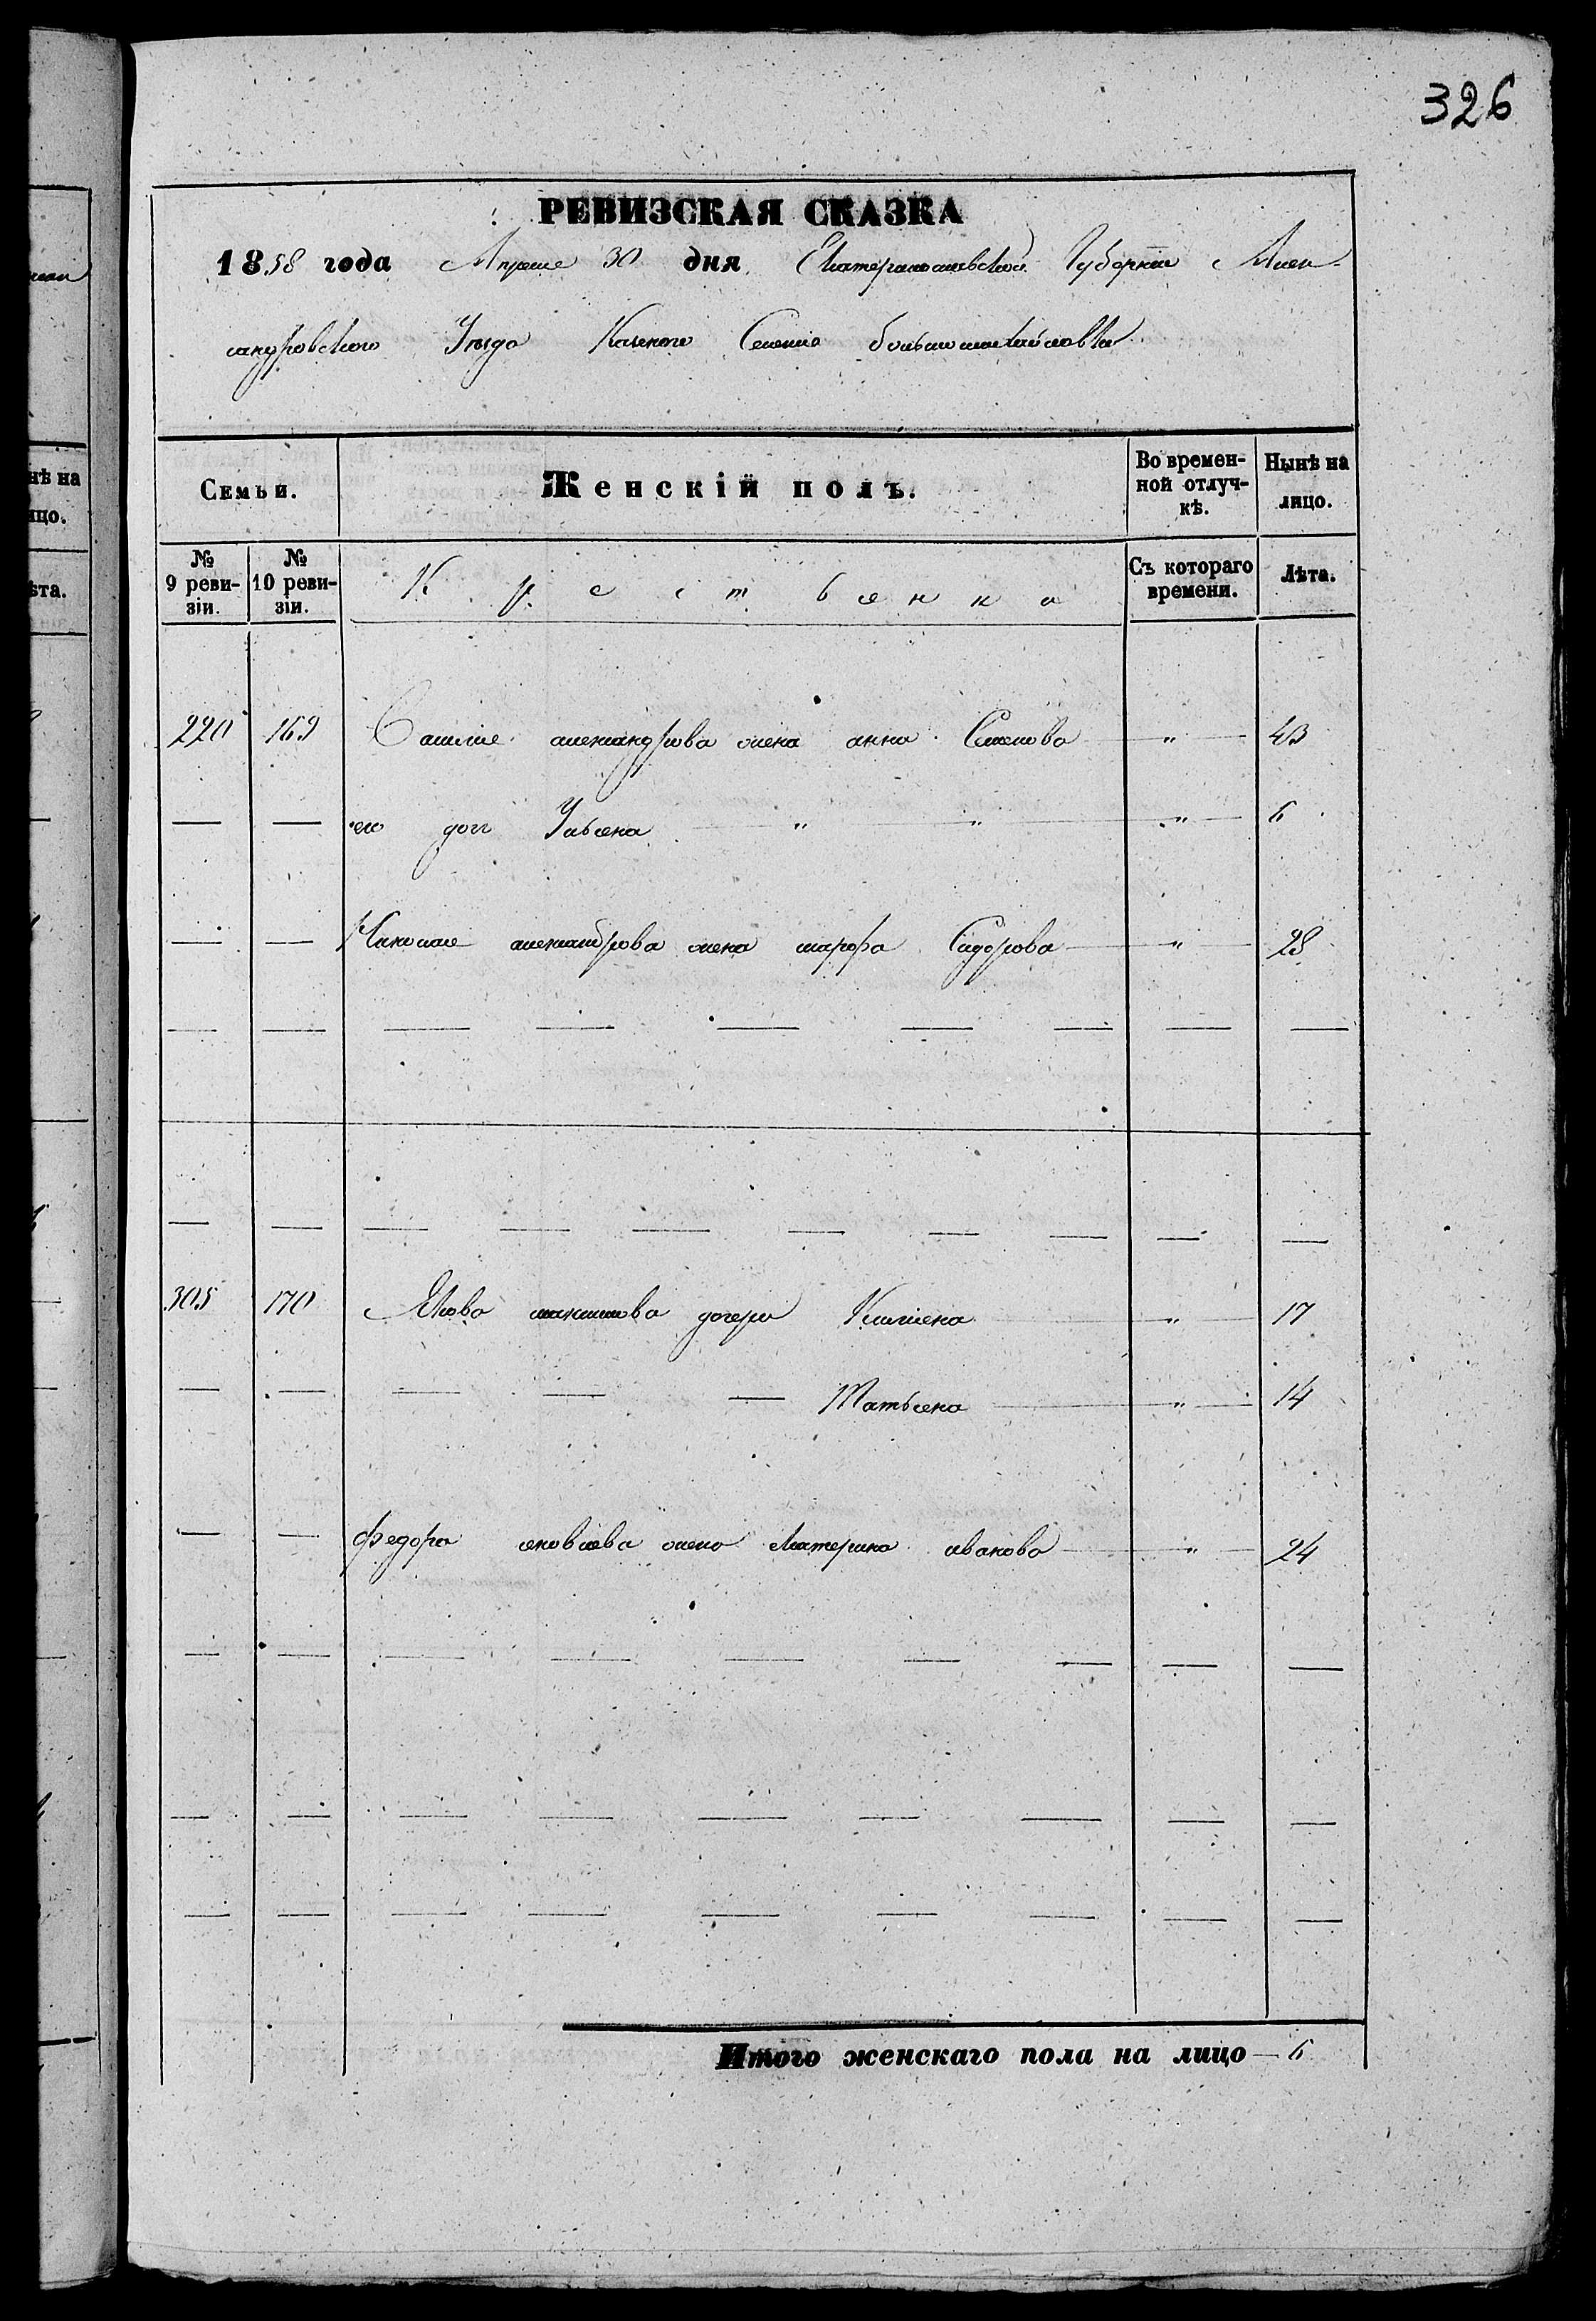 326
РЕВИЗСКАЯ СКАЗКА
1858 года Апреля 30 дня Екатеринославской Губернии Алек-
сандровского Уезда Казенного Селения большомихайловки
Семьи.
Женскій полъ.
Во времен-
ной отлуч-
кѣ.
Нынѣ на
лицо.
№
9 реви-
зіи.
№
10 реви-
зіи.
Крестьянка
Съ котораго
времени.
Лѣта.
220 169 александрова жена анна Семенова " 43
— — его доч Ульяна " " " 6
— — Николая александрова жена марфа Сидорова " 28
305 170 Якова максимова дочери " 17
— — — — — Татьяна " 14
— — федора яковлева жена Катерина иванова " 24
Итого женскаго пола на лицо — 6
нѣ на
ицо.
ѣта.